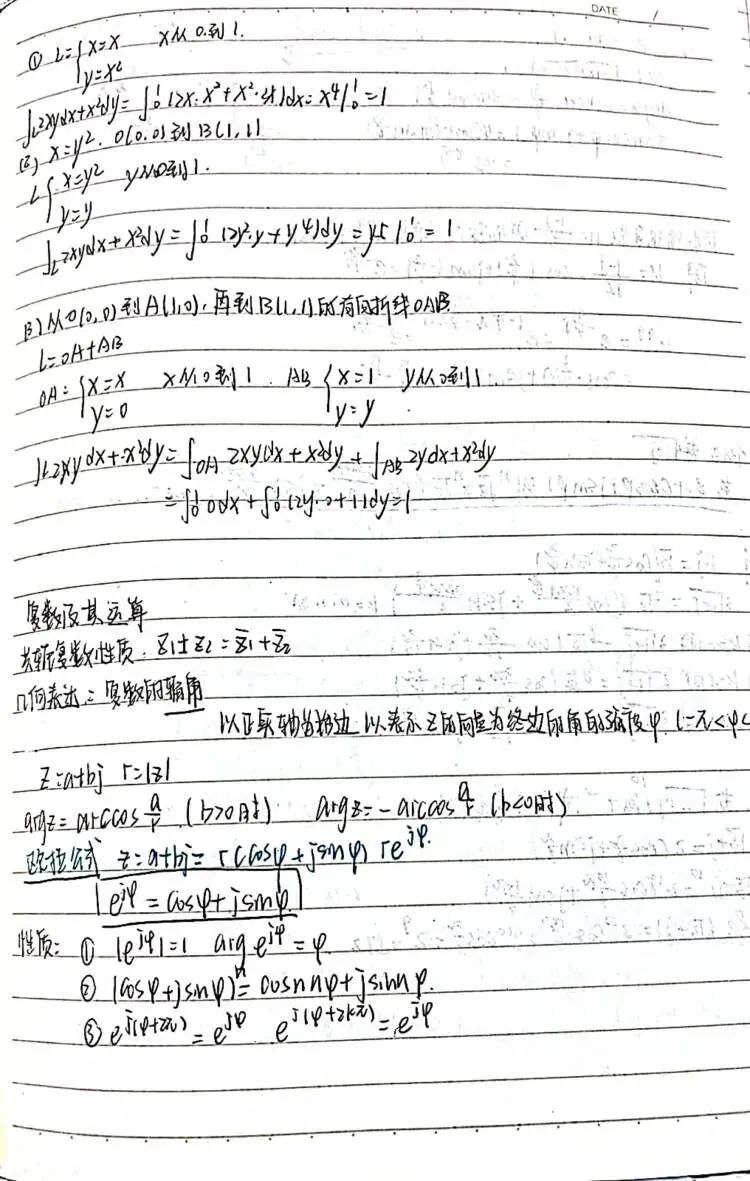 DATE
① L={x=x x从0到1.
y=x²
∫L 2xydx+x²dy=∫₀¹(2x·x²+x²·2x)dx=x⁴|₀¹=1
(2) x=y². O(0,0)到B(1,1)
L{x=y² y从0到1.
y=y
∫L 2xydx+x²dy=∫₀¹(2y²·y+y⁴)dy=y5|₀¹=1
(3) 从O(0,0)到A(1,0),再到B(1,1)的有向折线OAB
L=OA+AB
OA:{x=x x从0到1. AB{x=1 y从0到1
y=0 y=y
∫L 2xydx+x²dy=∫OA 2xydx+x²dy+∫AB 2ydx+x²dy
=∫₀¹0dx+∫₀¹(2y·0+1)dy=1
复数及其运算
共轭复数性质. z̄₁±z₂=z̄₁+z̄₂
几何表达: 复数的辐角
以正实轴为始边 以表示z的向量为终边的角的弧度φ.(-π<φ<
z=a+bj r=|z|
argz=arccos a/r (b>0时) argz=-arccos a/r (b<0时)
欧拉公式 z=a+bj=r(cosφ+jsinφ) re^{jφ}.
e^{jφ}=cosφ+jsinφ
性质: ① |e^{jφ}|=1 arg e^{jφ}=φ
② (cosφ+jsinφ)ⁿ=cosnφ+jsinnφ.
③ e^{j(φ+2π)}=e^{jφ} e^{j(φ+2kπ)}=e^{jφ}